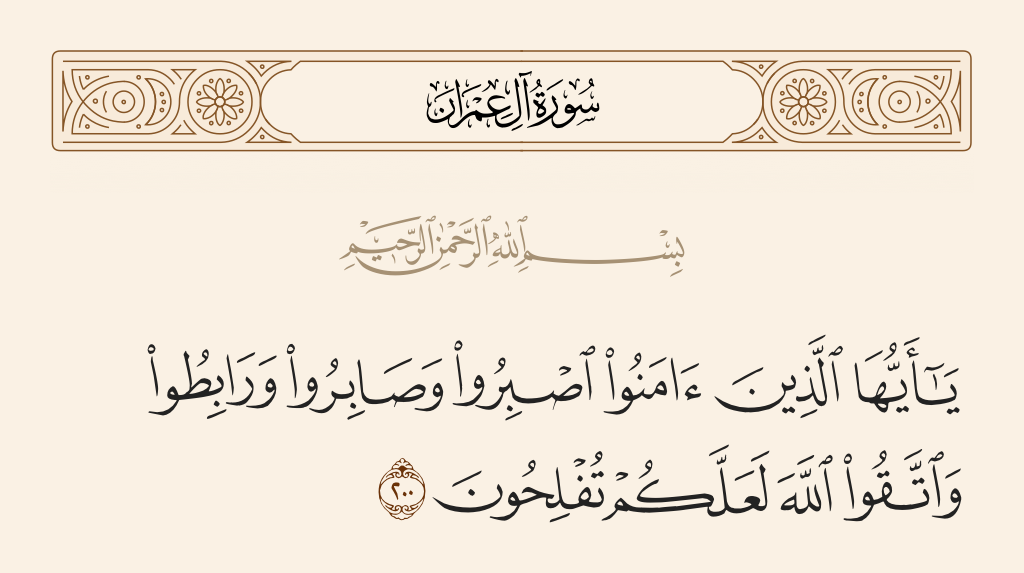 سُورَةُ آلِ عِمْرَانَ
بِسْمِ ٱللَّهِ ٱلرَّحْمَٰنِ ٱلرَّحِيمِ
يَـٰٓأَيُّهَا ٱلَّذِينَ ءَامَنُوا۟ ٱصْبِرُوا۟ وَصَابِرُوا۟ وَرَابِطُوا۟
وَٱتَّقُوا۟ ٱللَّهَ لَعَلَّكُمْ تُفْلِحُونَ ٢٠٠